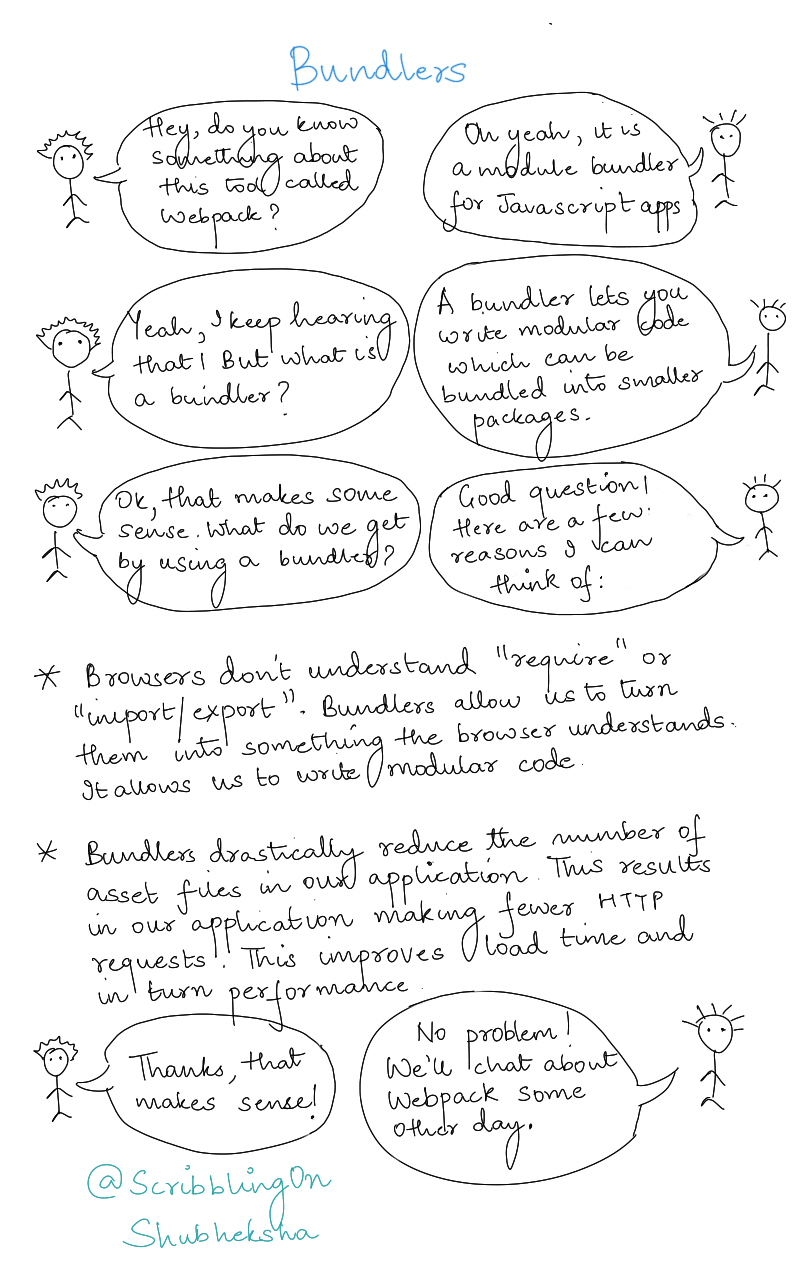 Bundlers
Hey, do you know
something about
this tool called
Webpack?
Oh yeah, it is
a module bundler
for Javascript apps
Yeah, I keep hearing
that! But what is
a bundler?
A bundler lets you
write modular code
which can be
bundled into smaller
packages.
Ok, that makes some
sense. What do we get
by using a bundler?
Good question!
Here are a few
reasons I can
think of:
* Browsers don't understand "require" or
"import/export". Bundlers allow us to turn
them into something the browser understands.
It allows us to write modular code.
* Bundlers drastically reduce the number of
asset files in our application. This results
in our application making fewer HTTP
requests. This improves load time and
in turn performance.
Thanks, that
makes sense!
No problem!
We'll chat about
Webpack some
other day.
@ScribblingOn
Shubheksha